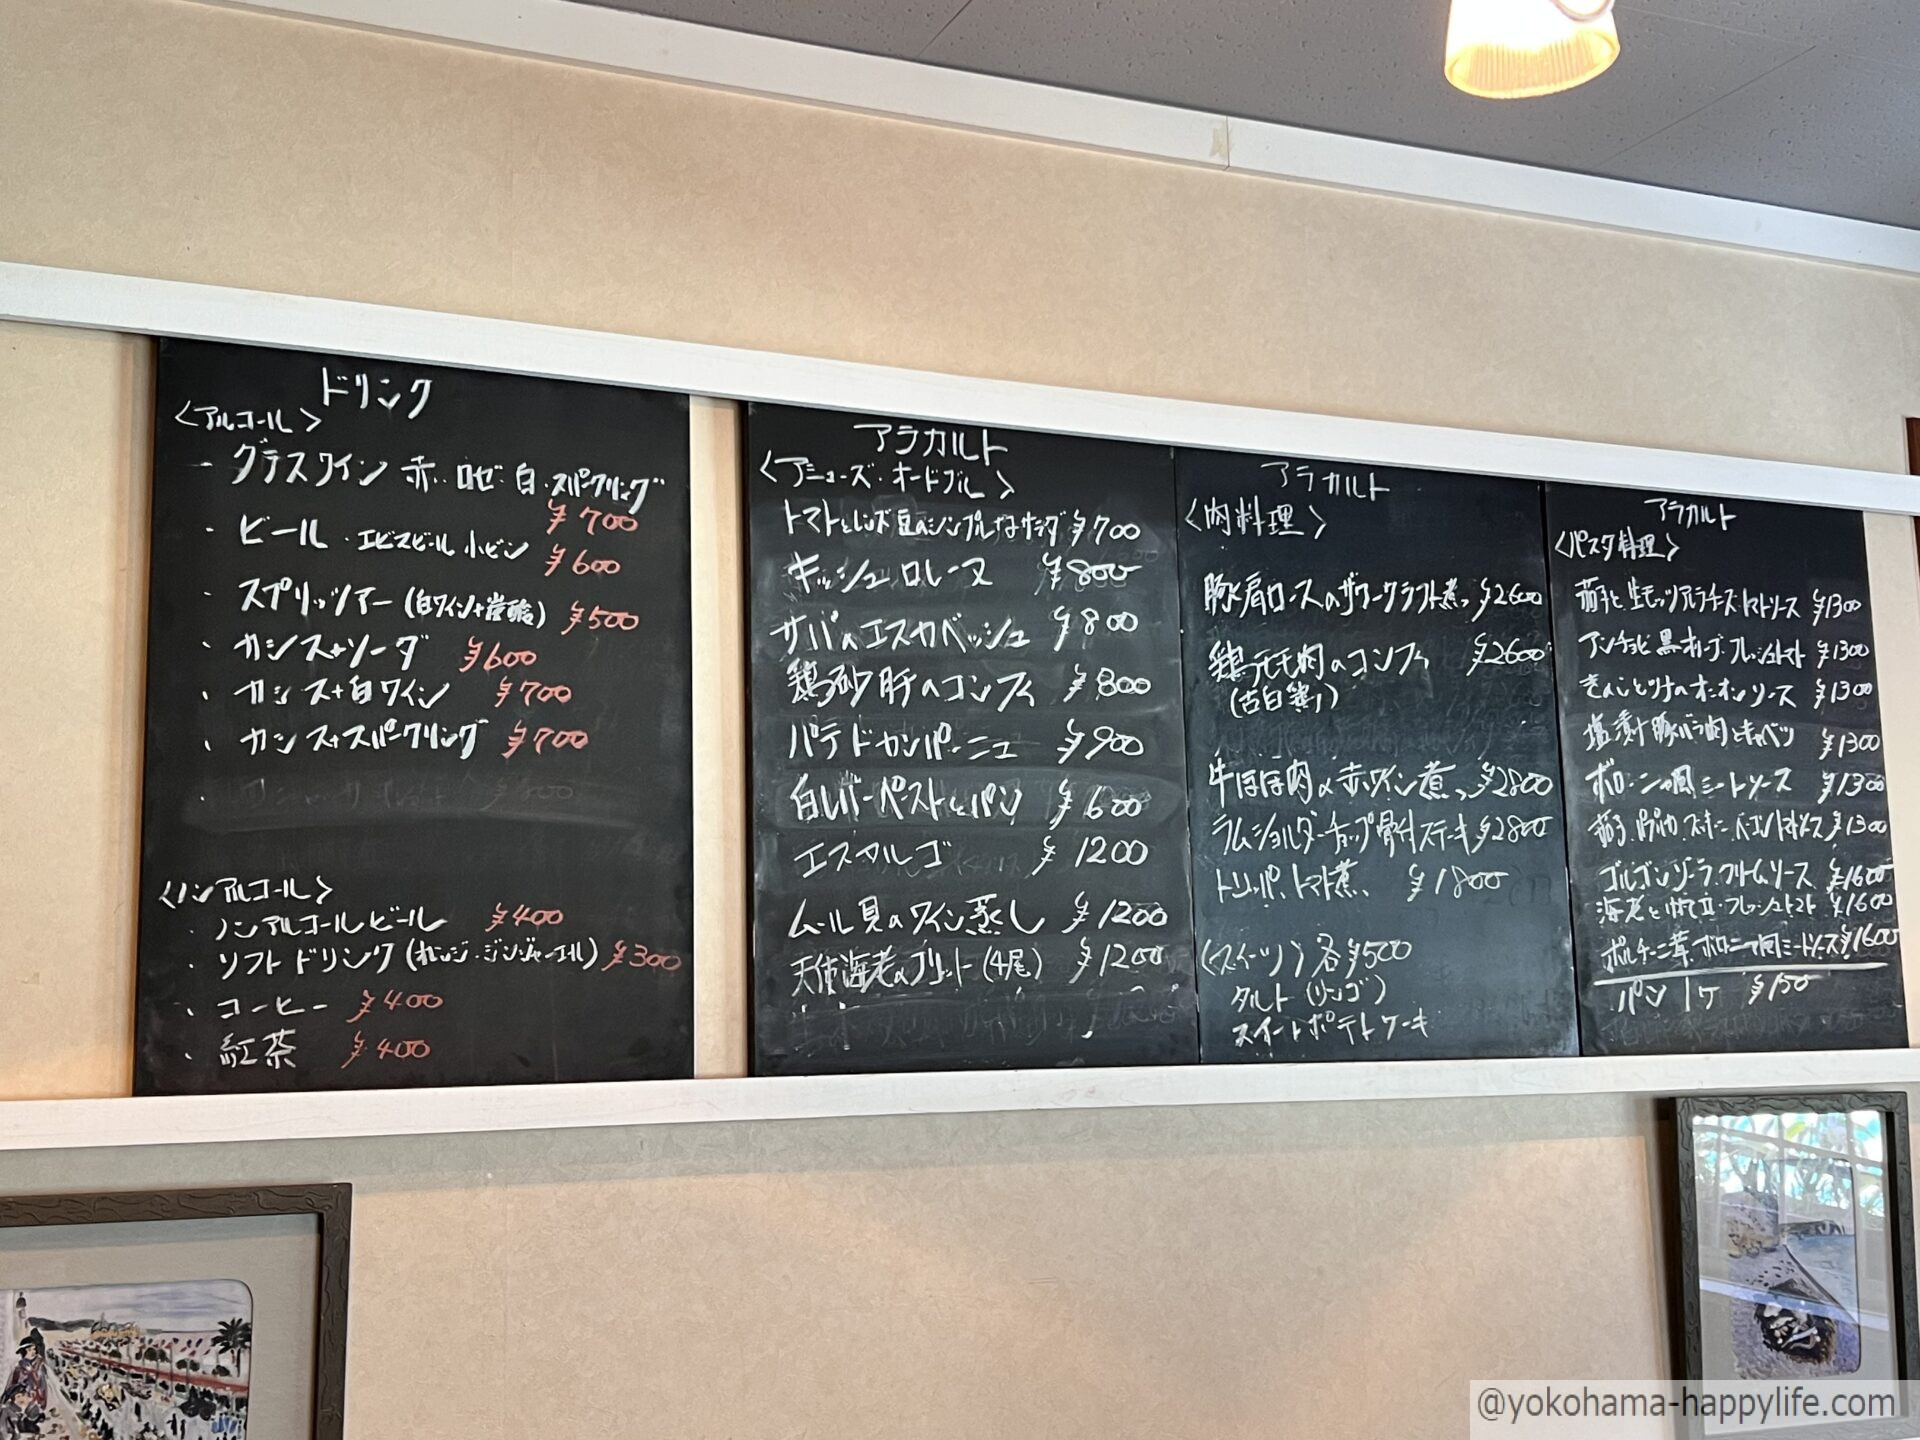 ドリンク
〈アルコール〉
・グラスワイン 赤・ロゼ・白・スパークリング
¥700
・ビール・エビスビール 小ビン ¥600
・スプリッツァー(白ワイン+炭酸) ¥500
・カシス+ソーダ ¥600
・カシス+白ワイン ¥700
・カシス+スパークリング ¥700
〈ノンアルコール〉
・ノンアルコールビール ¥400
・ソフトドリンク(オレンジ・ジンジャーエール) ¥300
・コーヒー ¥400
・紅茶 ¥400
アラカルト
〈アミューズ・オードブル〉
トマトとレンズ豆のシンプルなサラダ ¥700
キッシュロレーヌ ¥800
サバのエスカベッシュ ¥800
鶏砂肝のコンフィ ¥800
パテドカンパーニュ ¥900
白レバーペーストとパン ¥600
エスカルゴ ¥1200
ムール貝のワイン蒸し ¥1200
天使海老のフリット(4尾) ¥1200
アラカルト
〈肉料理〉
豚肩ロースのザワークラフト煮 ¥2600
鶏モモ肉のコンフィ ¥2600
牛ほほ肉の赤ワイン煮 ¥2800
ラムショルダーチョップ骨付ステーキ ¥2800
トリッパ、トマト煮 ¥1800
〈スイーツ〉各¥500
タルト(リンゴ)
スイートポテトケーキ
アラカルト
〈パスタ料理〉
茄子と生モッツァレラチーズ・トマトソース ¥1300
アンチョビ黒オリーブ・フレッシュトマト ¥1300
きのことツナのオニオンソース ¥1300
塩漬け豚バラ肉とキャベツ ¥1300
ボローニャ風ミートソース ¥1300
茄子 ¥1300
ゴルゴンゾーラ・クリームソース ¥1600
海老と帆立・フレッシュトマト ¥1600
ポルチーニ茸・ボロニア風ミートソース ¥1600
パン 1ケ ¥150
@yokohama-happylife.com